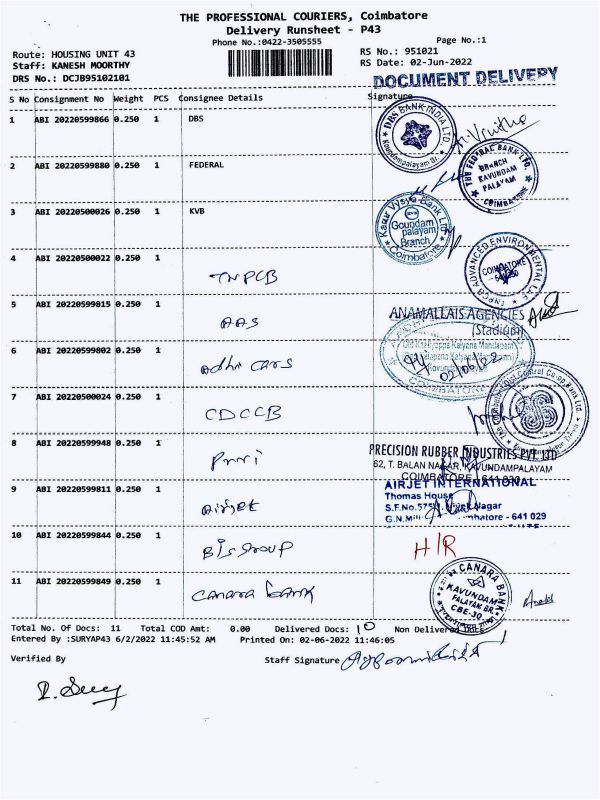 THE PROFESSIONAL COURIERS, Coimbatore
Delivery Runsheet - P43
Phone No.:0422-3505555
Page No.:1
Route: HOUSING UNIT 43
RS No.: 951021
Staff: KANESH MOORTHY
RS Date: 02-Jun-2022
DRS No.: DCJB95102101
DOCUMENT DELIVERY
S No Consignment No Weight PCS Consignee Details Signature
1 ABI 20220599866 0.250 1 DBS
DBS BANK INDIA LTD
2 ABI 20220599880 0.250 1 FEDERAL
THE FEDERAL BANK LTD.
BRANCH
KAVUNDAM
PALAYAM
COIMBATORE
3 ABI 20220500026 0.250 1 KVB
Karur Vysya Bank Ltd
Goundam
palayam
Branch
Coimbatore
4 ABI 20220500022 0.250 1
TNPCB
TNPCB ADVANCED ENVIRONMENTAL
COIMBATORE
5 ABI 20220599815 1
0.250
AAS
ANAMALLAIS AGENCIES
(Stadium)
6 ABI 20220599802 0.250 1
Adhi cars
02/06/22
COIMBATORE
7 ABI 20220500024 0.250 1
CDCCB
8 ABI 20220599948 0.250 1
PRECISION RUBBER INDUSTRIES PVT. LTD
62, T. BALAN NAGAR, KAVUNDAMPALAYAM
COIMBATORE
9 ABI 20220599811 0.250 1
Airjet
AIRJET INTERNATIONAL
Thomas House
Nagar
641 029
10 ABI 20220599844 0.250 1
H/R
11 ABI 20220599849 0.250 1
Canara bank
CANARA BANK
KAVUNDAM
PALAYAM BR.
CBE-30
Total No. Of Docs: 11 Total COD Amt: 0.00 Delivered Docs: 10 Non Delivered
Entered By :SURYAP43 6/2/2022 11:45:52 AM Printed On: 02-06-2022 11:46:05
Verified By
Staff Signature